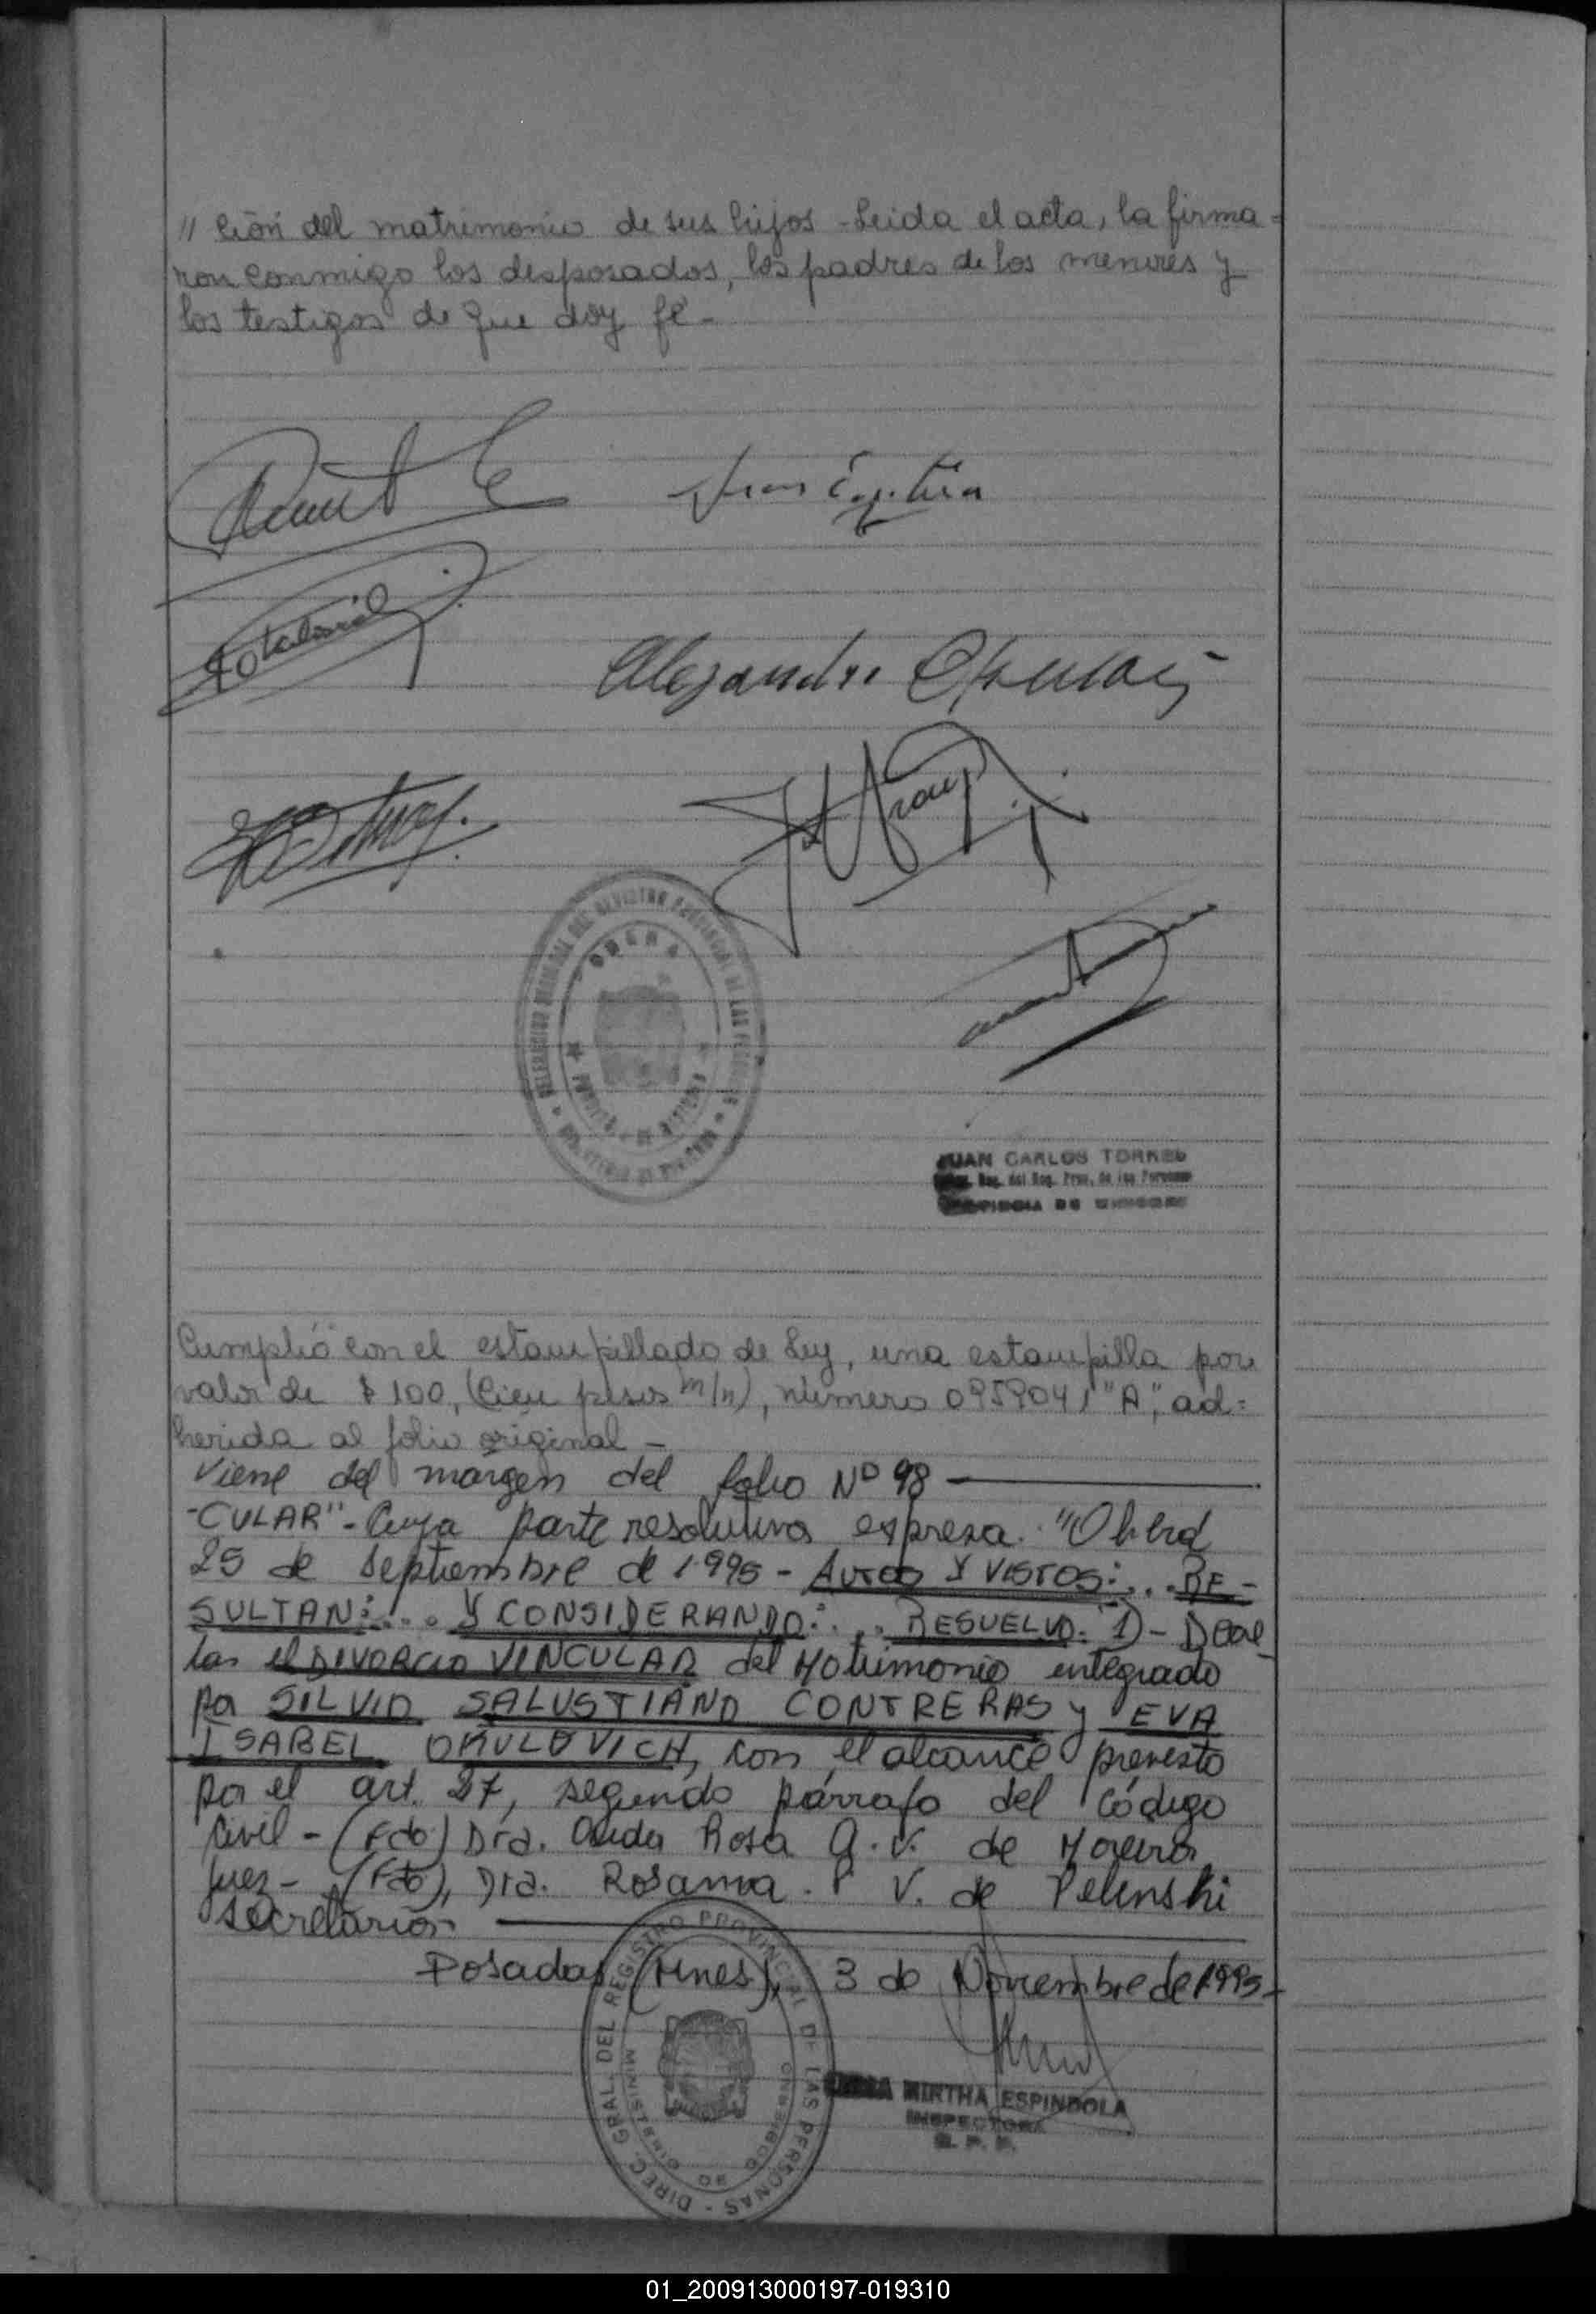 // ción del matrimonio de sus hijos - Leida el acta, la firma=
ron conmigo los desposados, los padres de los menores y
los testigos de que doy fé -
Alejandro
OBERA
JUAN CARLOS TORRES
Reg. del Reg. Prov. de las Personas
Cumplió con el estampillado de Ley, una estampilla por
valor de $ 100, (Cien pesos m/n), número 0959041 "A", ad=
herida al folio original -
Viene del márgen del folio Nº 98
-CULAR" - Cuya parte resolutiva expresa. "Oberá
25 de Septiembre de 1.995 - AUTOS Y VISTOS:... RE-
SULTAN:... Y CONSIDERANDO:... RESUELVO: 1) - Decre
tar el DIVORCIO VINCULAR del Matrimonio integrado
por SILVIO SALUSTIANO CONTRERAS y EVA
ISABEL OKULOVICH, con el alcance previsto
por el art. 27, segundo párrafo del Código
Civil - (Fdo) Dra. Rosa A. V. de Moreira
Juez - (Fdo), Dra. Rosanna. P V. de Pelinski
Secretaria
Posadas (Mnes), 3 de Noviembre de 1995-
DIREC. GRAL. DEL REGISTRO PROVINCIAL DE LAS PERSONAS
MINISTERIO DE GOBIERNO
MIRTHA ESPINDOLA
INSPECTORA
R. P. P.
01_200913000197-019310